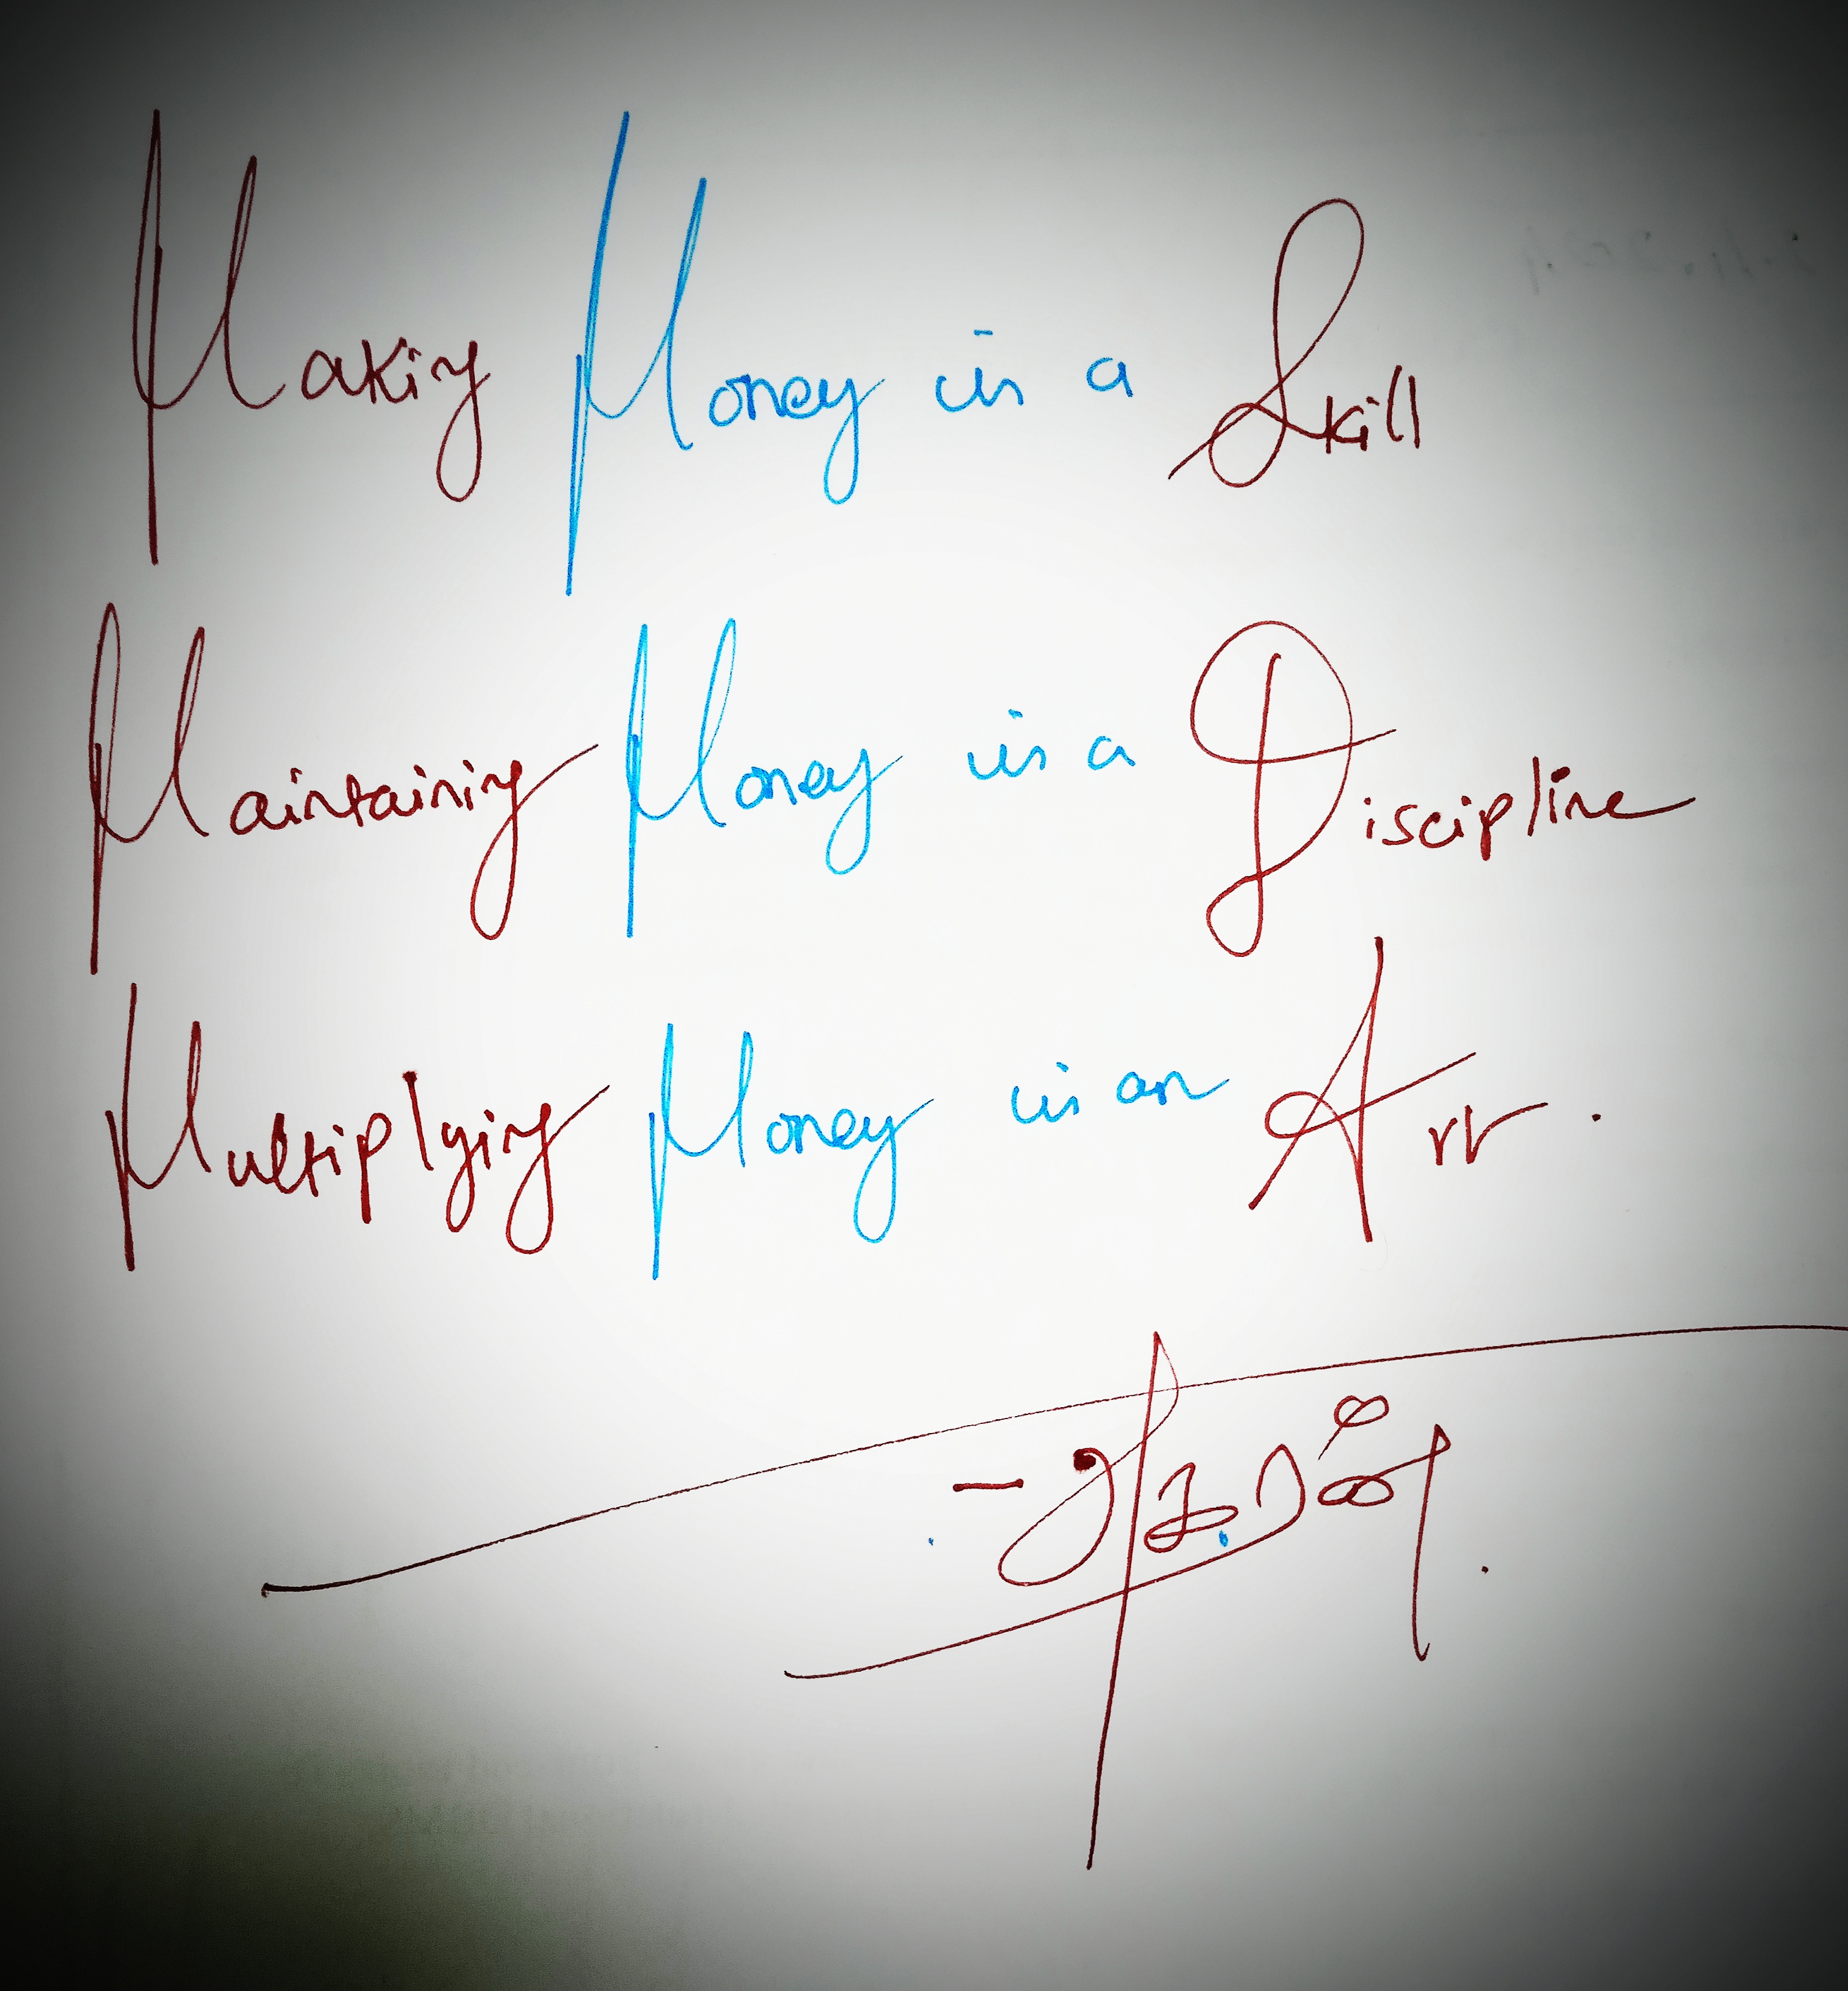 Making Money is a Skill
Maintaining Money is a Discipline
Multiplying Money is an Art.